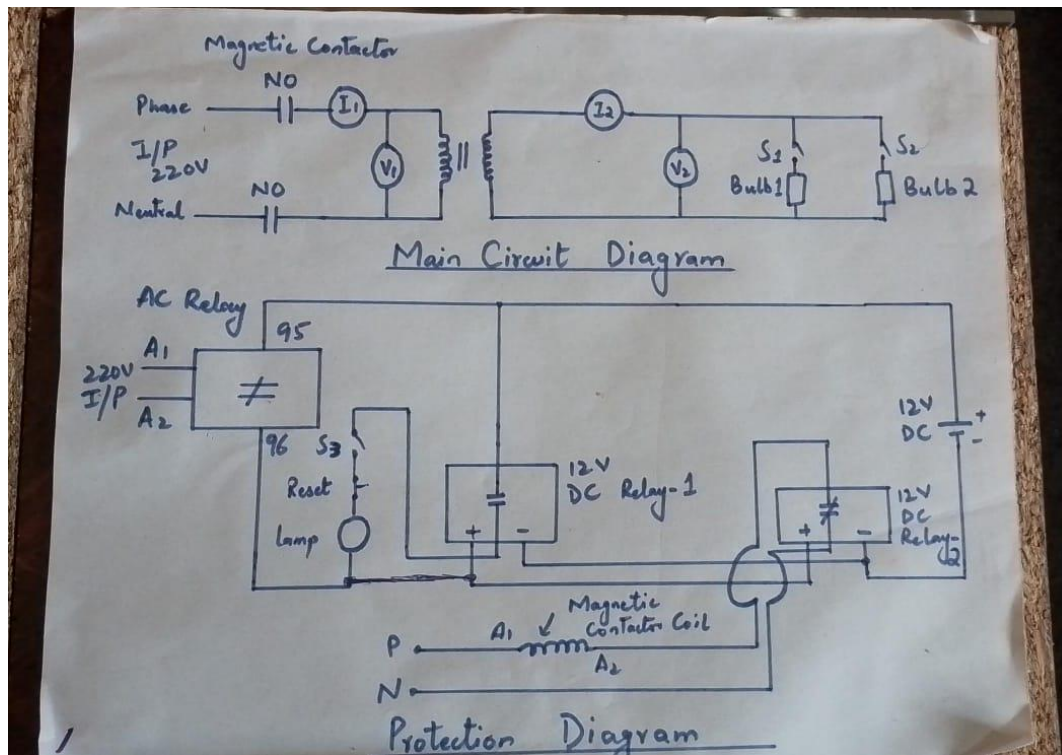 Magnetic Contactor
NO
Phase
I1
I/P
220V
V1
I2
V2
S1
Bulb1
S2
Bulb 2
NO
Neutral
Main Circuit Diagram
AC Relay
95
A1
220V
I/P
A2
96
S3
Reset
Lamp
12V
DC Relay-1
+ -
12V
DC
+
-
12V
DC
Relay-2
+ -
Magnetic
Contactor Coil
A1
P
A2
N
Protection Diagram